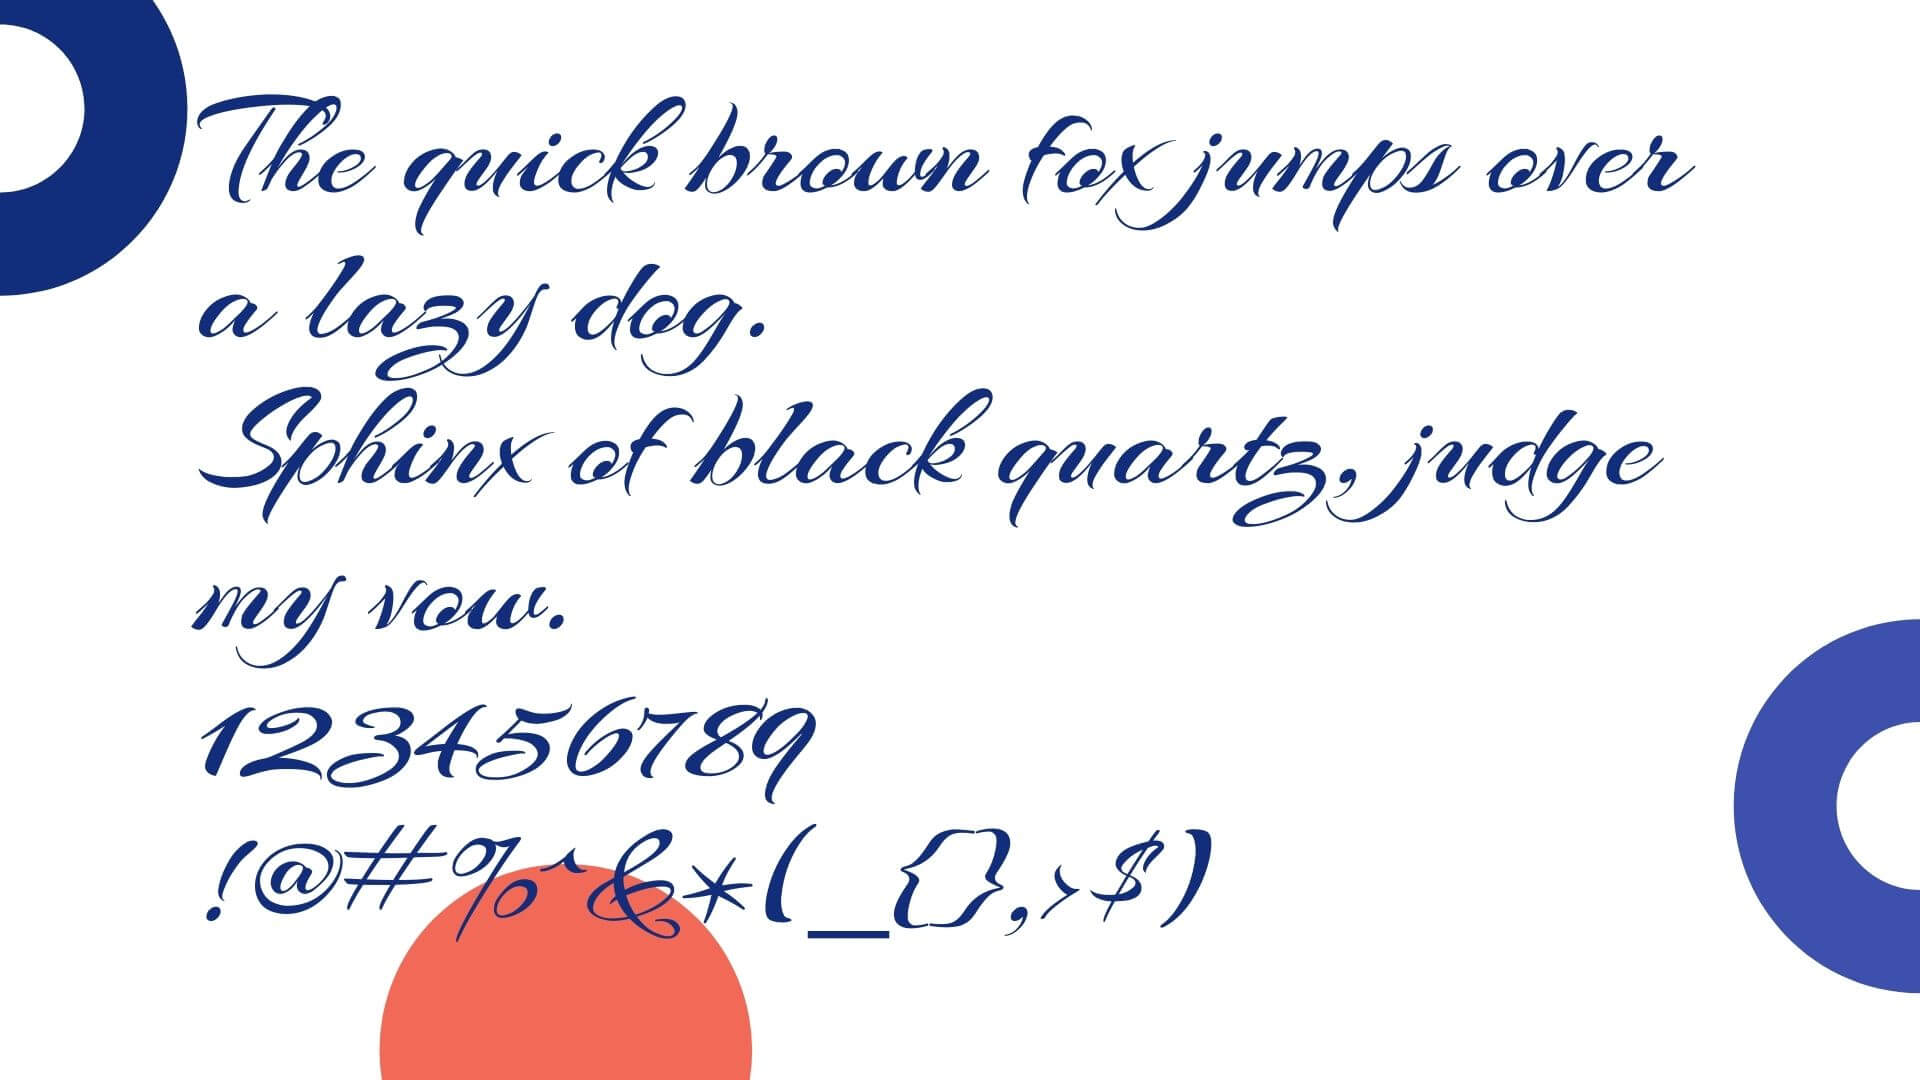 The quick brown fox jumps over
a lazy dog.
Sphinx of black quartz, judge
my vow.
123456789
!@#%^&*(_{},>$)